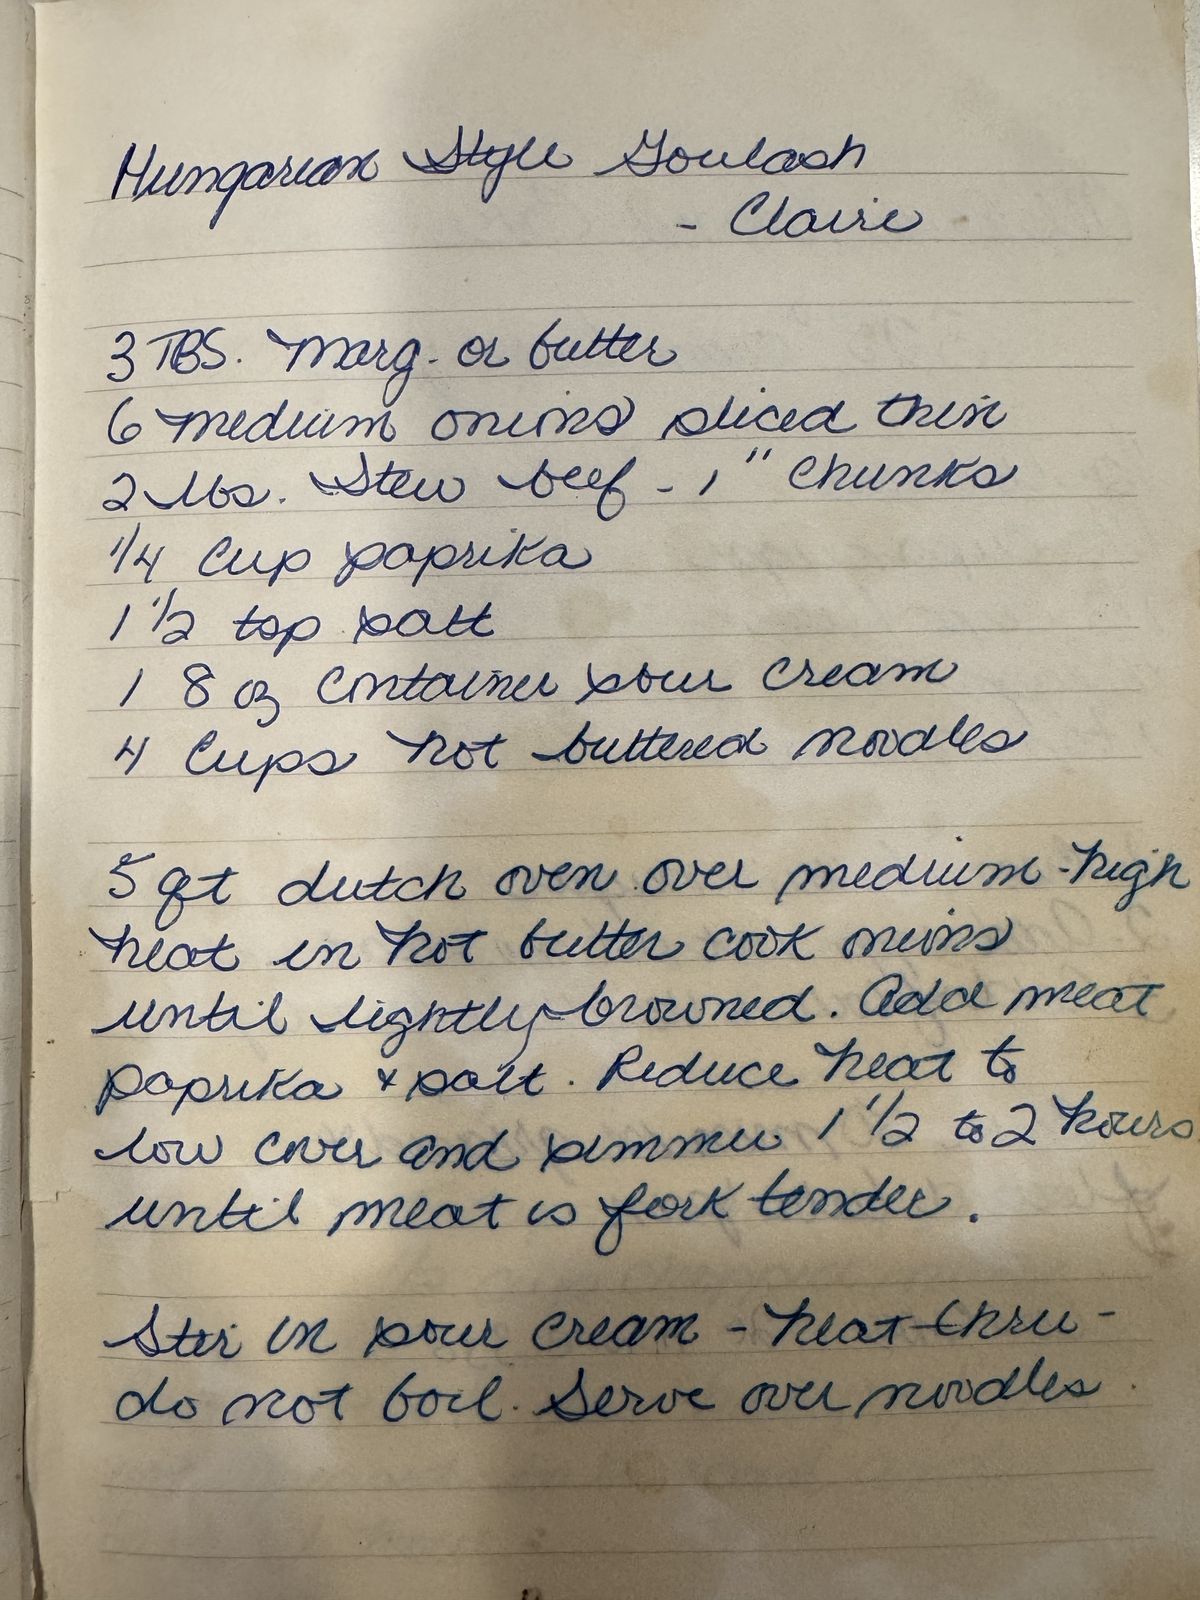 Hungarian Style Goulash
- Claire
3 TBS. Marg. or butter
6 medium onions sliced thin
2 lbs. Stew beef - 1" Chunks
1/4 Cup paprika
1 1/2 tsp salt
1 8 oz Container sour cream
4 Cups hot buttered noodles
5 qt dutch oven over medium-high
heat in hot butter cook onions
until lightly browned. Add meat
paprika + salt. Reduce heat to
low cover and simmer 1 1/2 to 2 hours
until meat is fork tender.
Stir in sour cream - heat thru -
do not boil. Serve over noodles.